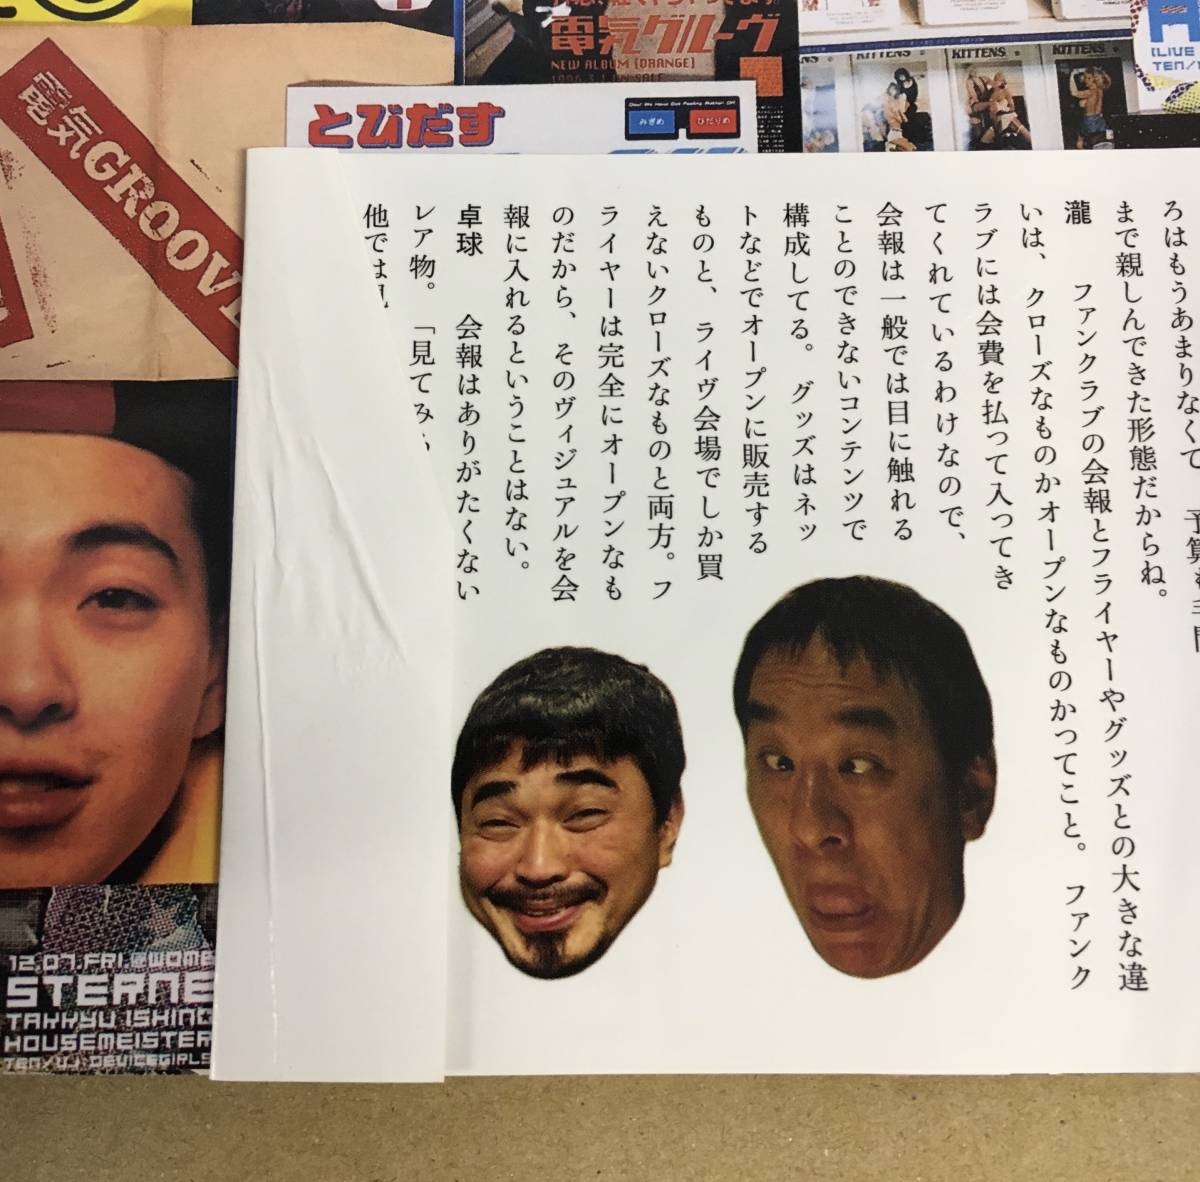 電気GROOVE
電気グルーヴ
NEW ALBUM [ORANGE]
1996.3.1 ON SALE
KITTENS
KITTENS
KITTENS
(LIVE
とびだす
みぎめ
ひだりめ
ろはもうあまりなくて
まで親しんできた形態だからね。
瀧　ファンクラブの会報とフライヤーやグッズとの大きな違
いは、クローズなものかオープンなものかってこと。ファンク
ラブには会費を払って入ってき
てくれているわけなので、
会報は一般では目に触れる
ことのできないコンテンツで
構成してる。グッズはネッ
トなどでオープンに販売する
ものと、ライヴ会場でしか買
えないクローズなものと両方。フ
ライヤーは完全にオープンなも
のだから、そのヴィジュアルを会
報に入れるということはない。
卓球　会報はありがたくない
レア物。「見てみ
他では
12.07.FRI.@WOMB
STERNE
TAKKYU ISHINO
HOUSEMEISTER
TEN/VJ: DEVICEGIRLS